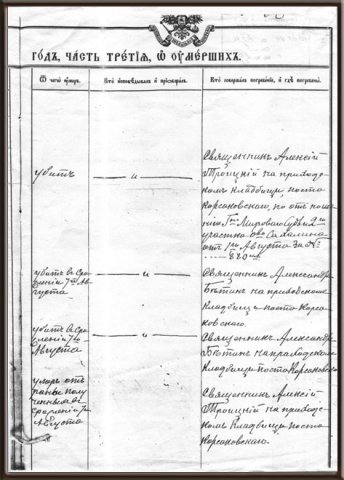 годъ, часть третїѧ, ѽ оумершихъ.
Ѿ чегѡ оумеръ.
Кто исповѣдывалъ и прїобщалъ.
Кто совершалъ погребенїе, и гдѣ погребены.
убитъ
— " —
Священникъ Алексій
Троицкій на приходс-
комъ кладбищѣ поста
Корсаковскаго, по отноше-
нію Гна Мироваго Судьи 2го
участка о-ва Сахалина
отъ Августа за №
820мъ
убитъ въ Сра-
женіи 7го Ав-
густа
— " —
Священникъ Александръ
на приходскомъ
кладбищѣ поста Корса-
ковскаго.
убитъ въ Сра-
женіи 7го
Августа
— " —
Священникъ Александръ
на приходскомъ
кладбищѣ поста Корсаковскаго
умеръ отъ
раны полу-
ченныя въ
сраженіи 7го
Августа
Священникъ Алексій
Троицкій на приходс-
комъ кладбищѣ поста
Корсаковскаго.